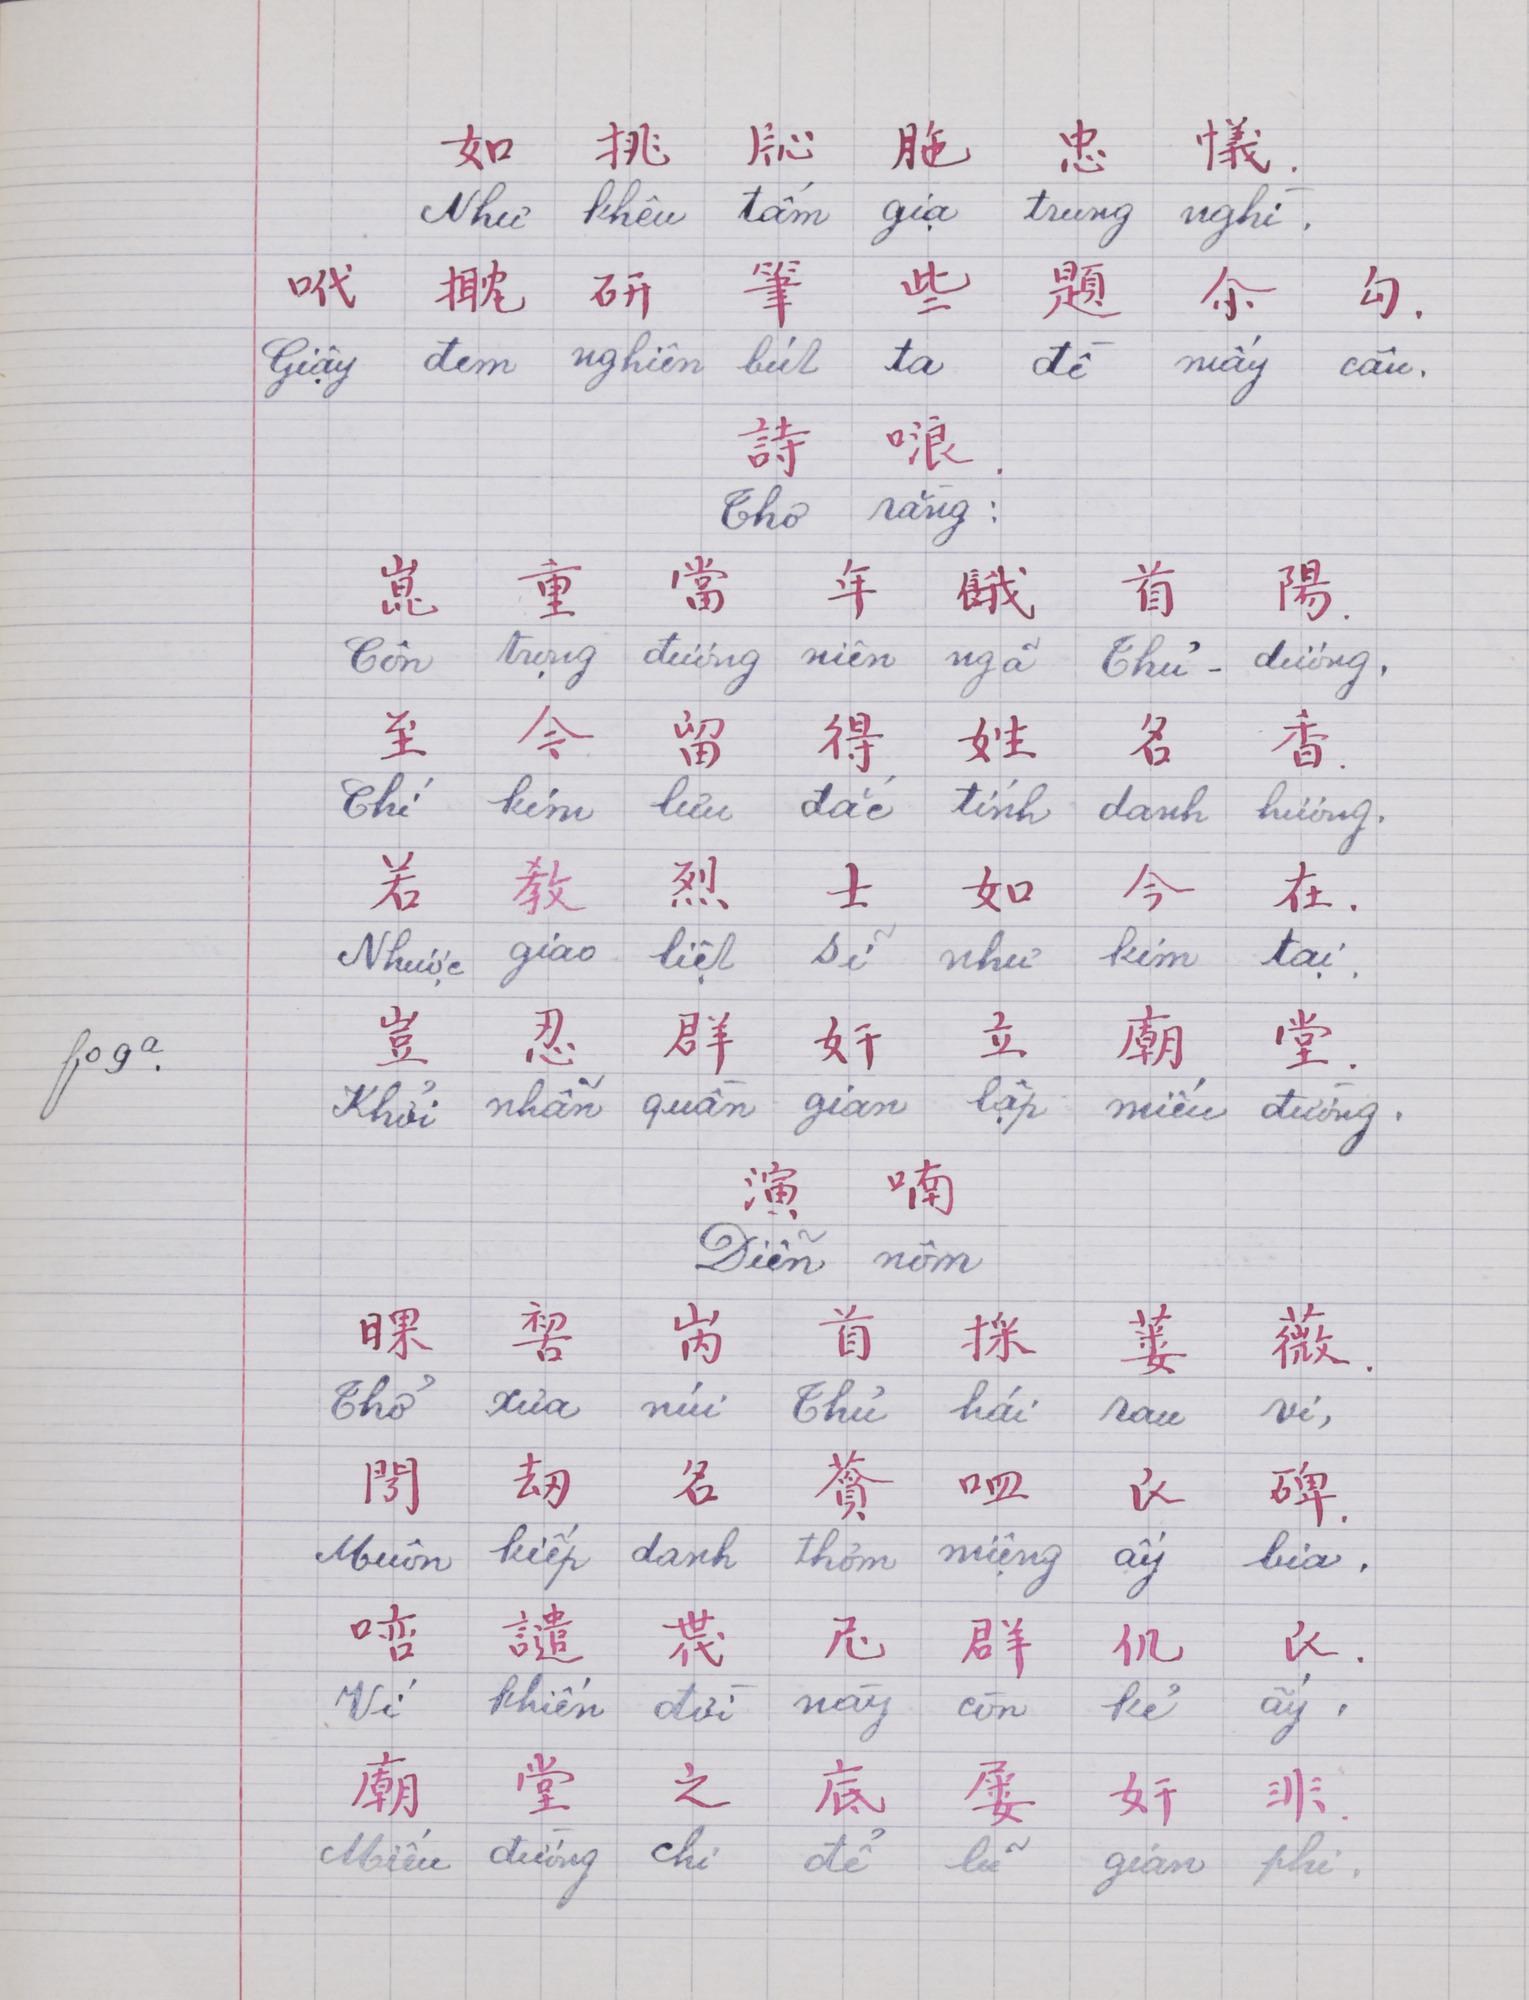 如 挑 𢚸 𦙏 忠 懺.
Như khêu tấm gia trung nghì.
𠯋 𢬗 研 筆 些 題 尒 勾.
Giậy đem nghiên bút ta đề mấy câu.
詩 㖫.
Thơ rằng:
崑 重 當 年 餓 首 陽.
Côn trọng đương niên ngã Thủ-dương.
至 今 留 得 姓 名 香.
Chí kim lưu đắc tính danh hương.
若 教 烈 士 如 今 在.
Nhược giao liệt sĩ như kim tại.
豈 忍 群 奸 立 廟 堂.
Khởi nhẫn quần gian lập miếu đường.
fo 9a.
演 喃
Diễn nôm
㫧 𠸗 𡶀 首 採 蔞 薇.
Thở xưa núi Thủ hái rau vi,
閍 刧 名 薲 𠰘 㕥 碑.
Muôn kiếp danh thơm miệng ấy bia.
𠳒 譴 𠁀 尼 群 仉 㕥.
Ví khiến đời này còn kẻ ấy,
廟 堂 之 底 屢 奸 非.
Miếu đường chi để lũ gian phi.